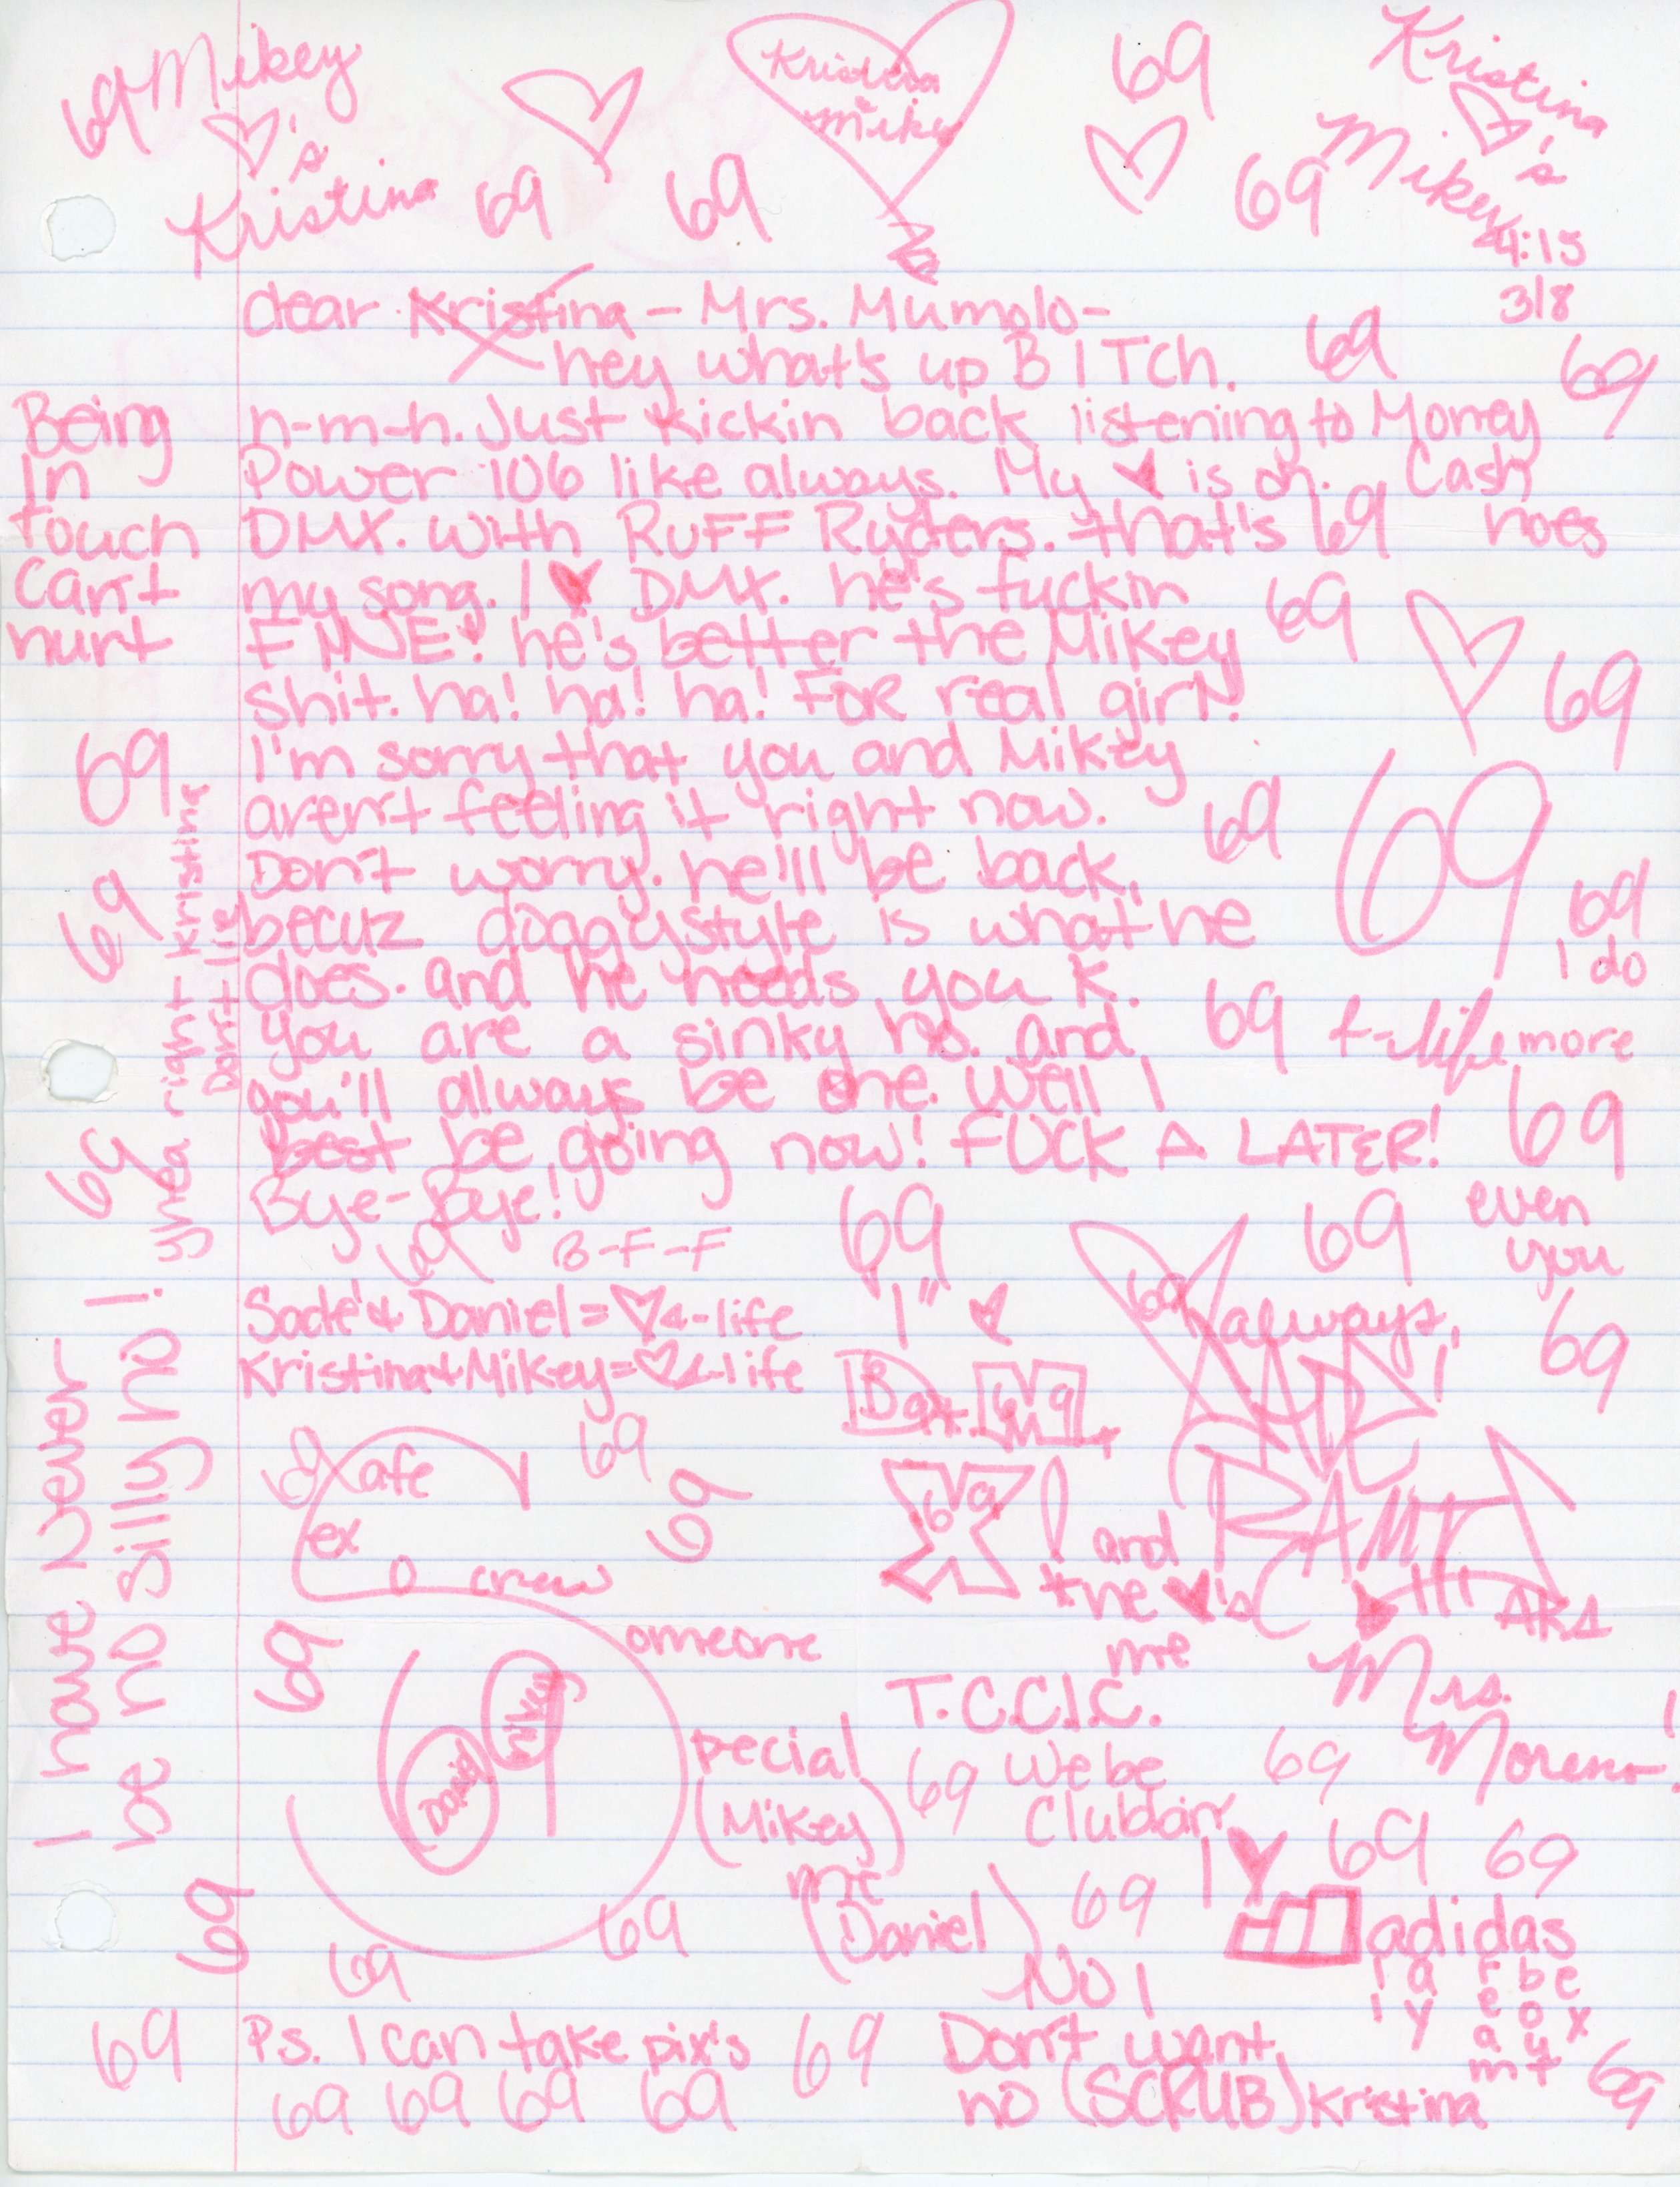 69 Mikey
♡'s
Kristina
69
69
Kristina
Mikey
69
69
Kristina
♡'s
Mikey
4:15
3/8
dear Kristina - Mrs. Mumolo -
hey what's up BITCh. 69
69
n-m-h. Just kickin back listening to
Power 106 like always. My ♥ is on.
DMX. with RUFF Ryders. that's 69
my song. I ♥ DMX. he's fuckin 69
FINE! he's better the Mikey
shit. ha! ha! ha! FOR real girl!
I'm sorry that you and Mikey
aren't feeling it right now.
Don't worry. he'll be back. 69
becuz doggystyle is what he
does. and he needs you K.
you are a sinky ho. and 69
you'll always be one. Well I
best be going now! FUCK A LATER!
Bye-Bye!
69
B-F-F
Money
Cash
hoes
♡ 69
69
69
I do
t-life more
69
even
you
69
69
Being
In
touch
Can't
hurt
69
69
69
yhea right Kristina
Don't lie
I have Never
be no silly ho!
Sade' & Daniel = ♡ 4-life
Kristina & Mikey = ♡ 4-life
69
1" ♥
69
always,
SADE'
69
69
69
afe
ex
crew
X
69
!
and
he ♥'s
me
AKA
Mrs.
Moreno!
69
omeone
pecial
(Mikey)
me
(Daniel)
Daniel
Mikey
69
69
69
T.C.C.I.C.
69 We be
Clubbin
69
69
69
69
I ♥
adidas
69
No I
Don't want
no (SCRUB) Kristina
69
69 Ps. I can take pix's 69
69 69 69 69